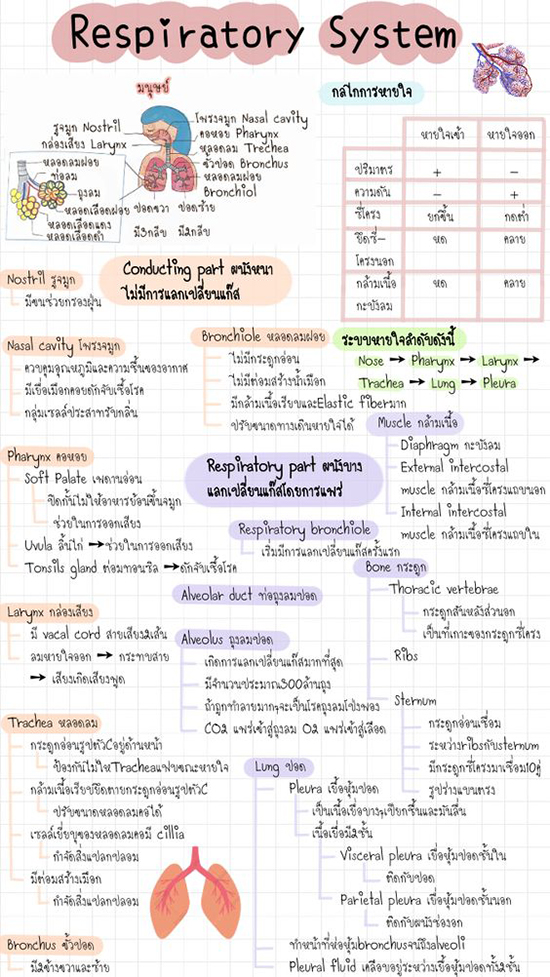 Respiratory System
มนุษย์
รูจมูก Nostril
กล่องเสียง Larynx
หลอดลมฝอย
ท่อลม
ถุงลม
หลอดเลือดฝอย
หลอดเลือดแดง
หลอดเลือดดำ
โพรงจมูก Nasal cavity
คอหอย Pharynx
หลอดลม Trechea
ขั้วปอด Bronchus
หลอดลมฝอย
Bronchiol
ปอดขวา ปอดซ้าย
มี3กลีบ มี2กลีบ
กลไกการหายใจ
หายใจเข้า หายใจออก
ปริมาตร + -
ความดัน - +
ซี่โครง ยกขึ้น กดต่ำ
ยึดซี่-
โครงนอก หด คลาย
กล้ามเนื้อ
กะบังลม หด คลาย
Conducting part ผนังหนา
ไม่มีการแลกเปลี่ยนแก๊ส
Nostril รูจมูก
มีขนช่วยกรองฝุ่น
Nasal cavity โพรงจมูก
ควบคุมอุณหภูมิและความชื้นของอากาศ
มีเยื่อเมือกคอยดักจับเชื้อโรค
กลุ่มเซลล์ประสาทรับกลิ่น
Pharynx คอหอย
Soft Palate เพดานอ่อน
ปิดกั้นไม่ให้อาหารย้อนขึ้นจมูก
ช่วยในการออกเสียง
Uvula ลิ้นไก่ → ช่วยในการออกเสียง
Tonsils gland ต่อมทอนซิล → ดักจับเชื้อโรค
Larynx กล่องเสียง
มี vacal cord สายเสียง2เส้น
ลมหายใจออก → กระทบสาย
→ เสียงเกิดเสียงพูด
Trachea หลอดลม
กระดูกอ่อนรูปตัวCอยู่ด้านหน้า
ป้องกันไม่ให้Tracheaแฟบขณะหายใจ
กล้ามเนื้อเรียบยึดตายกระดูกอ่อนรูปตัวC
ปรับขนาดหลอดคอได้
เซลล์เยื่อบุของหลอดลมคอมี cillia
กำจัดสิ่งแปลกปลอม
มีต่อมสร้างเมือก
กำจัดสิ่งแปลกปลอม
Bronchus ขั้วปอด
มี2ข้างขวาและซ้าย
Bronchiole หลอดลมฝอย
ไม่มีกระดูกอ่อน
ไม่มีต่อมสร้างน้ำเมือก
มีกล้ามเนื้อเรียบและElastic fiberมาก
ปรับขนาดทางเดินหายใจได้
Respiratory part ผนังบาง
แลกเปลี่ยนแก๊สโดยการแพร่
Respiratory bronchiole
เริ่มมีการแลกเปลี่ยนแก๊สครั้งแรก
Alveolar duct ท่อถุงลมปอด
Alveolus ถุงลมปอด
เกิดการแลกเปลี่ยนแก๊สมากที่สุด
มีจำนวนประมาณ300ล้านถุง
ถ้าถูกทำลายมากๆจะเป็นโรคถุงลมโป่งพอง
CO2 แพร่เข้าสู่ถุงลม O2 แพร่เข้าสู่เลือด
ระบบหายใจลำดับดังนี้
Nose → Pharynx → Larynx →
Trachea → Lung → Pleura
Muscle กล้ามเนื้อ
Diaphragm กะบังลม
External intercostal
muscle กล้ามเนื้อซี่โครงแถบนอก
Internal intercostal
muscle กล้ามเนื้อซี่โครงแถบใน
Bone กระดูก
Thoracic vertebrae
กระดูกสันหลังส่วนอก
เป็นที่เกาะของกระดูกซี่โครง
Ribs
Sternum
กระดูกอ่อนเชื่อม
ระหว่างribsกับsternum
มีกระดูกซี่โครงมาเชื่อม10คู่
รูปร่างแบนตรง
Lung ปอด
Pleura เยื่อหุ้มปอด
เป็นเนื้อเยื่อบางๆเปียกชื้นและมันลื่น
เนื้อเยื่อมี2ชั้น
Visceral pleura เยื่อหุ้มปอดชั้นใน
ติดกับปอด
Parietal pleura เยื่อหุ้มปอดชั้นนอก
ติดกับผนังช่องอก
ทำหน้าที่ห่อหุ้มbronchusจนถึงalveoli
Pleural fluid เคลือบอยู่ระหว่างเยื่อหุ้มปอดทั้ง2ชั้น